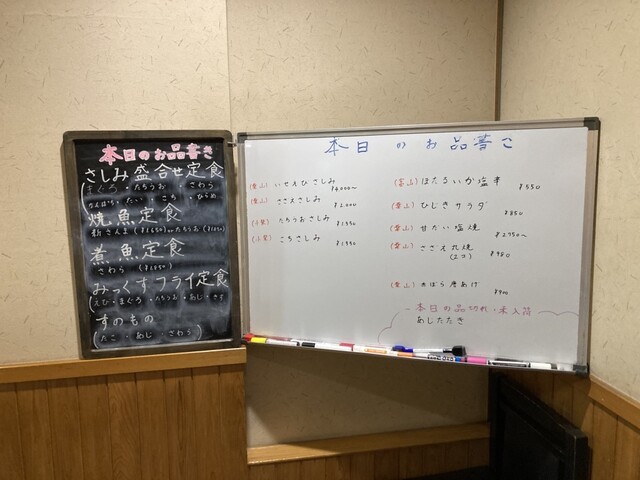 本日のお品書き
さしみ盛合せ定食
(まぐろ・たちうお・さわら
かんぱち・たい・こち・ひらめ
焼魚定食
新さんま(¥1650)orたちうお(¥1650)
煮魚定食
さわら(¥1650)
みっくすフライ定食
(えび・まぐろ・たちうお・あじ・きす
すのもの
(たこ・あじ・さわら)
本日のお品書き
(葉山) いせえびさしみ ¥4000〜
(葉山) さざえさしみ ¥2000
(小柴) たちうおさしみ ¥1550
(小柴) こちさしみ ¥1550
(富山) ほたるいか塩辛 ¥550
(葉山) ひじきサラダ ¥850
(葉山) 甘だい塩焼 ¥2750〜
(葉山) さざえ丸焼 (2コ) ¥980
(葉山) 唐あげ ¥900
本日の品切れ・未入荷
あしたたき